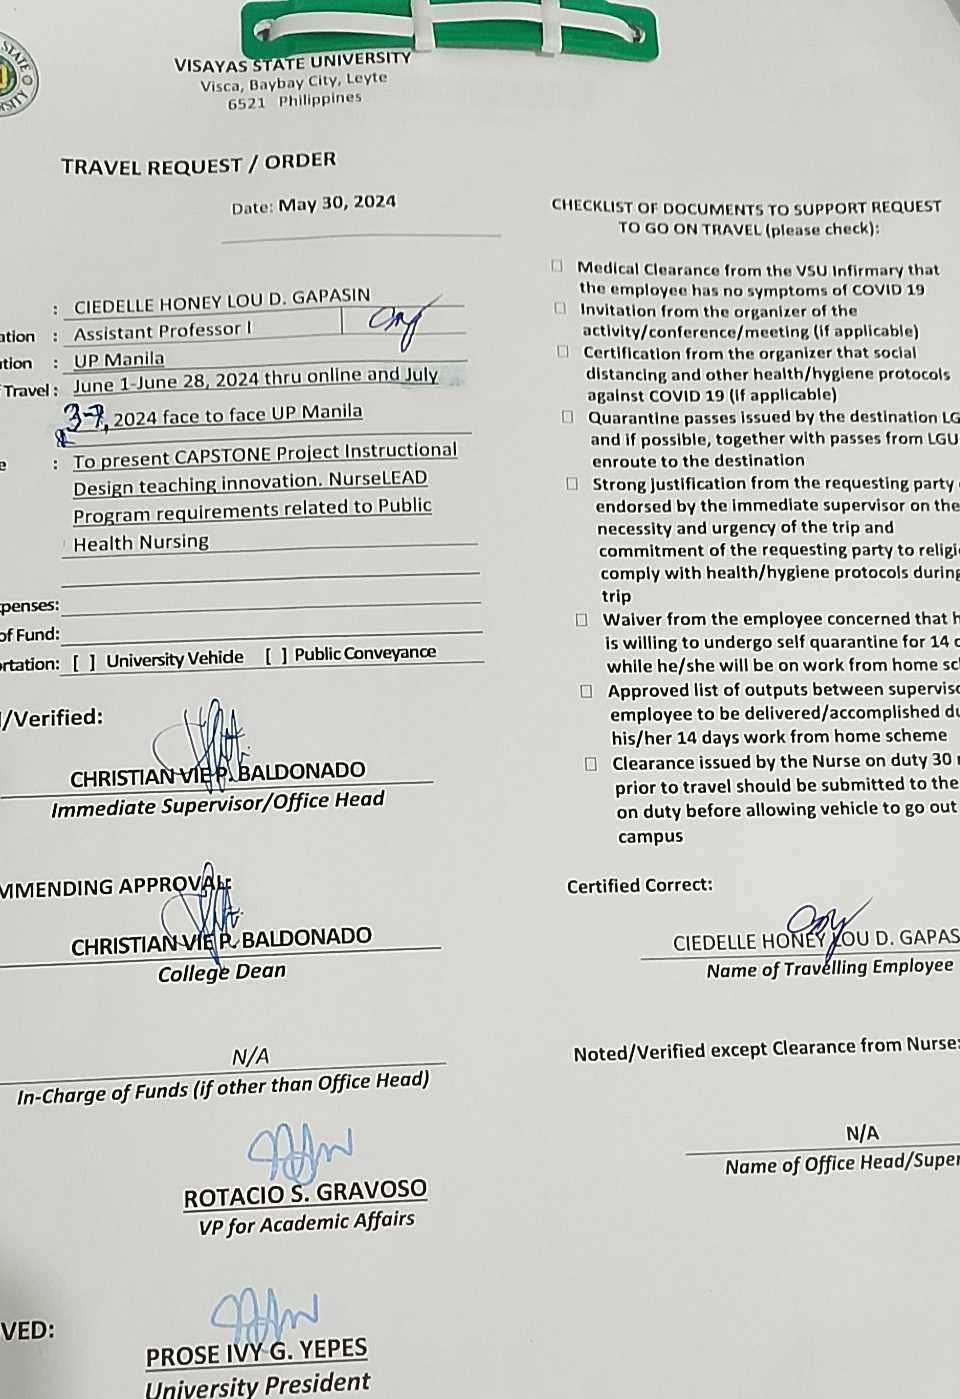 VISAYAS STATE UNIVERSITY
Visca, Baybay City, Leyte
6521 Philippines
TRAVEL REQUEST / ORDER
Date: May 30, 2024
: CIEDELLE HONEY LOU D. GAPASIN
ation : Assistant Professor I
ation : UP Manila
f Travel : June 1-June 28, 2024 thru online and July
3-7, 2024 face to face UP Manila
e : To present CAPSTONE Project Instructional
Design teaching innovation. NurseLEAD
Program requirements related to Public
Health Nursing
penses:
of Fund:
rtation: [ ] University Vehicle [ ] Public Conveyance
l/Verified:
CHRISTIAN VIE P. BALDONADO
Immediate Supervisor/Office Head
MMENDING APPROVAL:
CHRISTIAN VIE P. BALDONADO
College Dean
N/A
In-Charge of Funds (if other than Office Head)
ROTACIO S. GRAVOSO
VP for Academic Affairs
VED:
PROSE IVY G. YEPES
University President
CHECKLIST OF DOCUMENTS TO SUPPORT REQUEST
TO GO ON TRAVEL (please check):
☐ Medical Clearance from the VSU Infirmary that
the employee has no symptoms of COVID 19
☐ Invitation from the organizer of the
activity/conference/meeting (if applicable)
☐ Certification from the organizer that social
distancing and other health/hygiene protocols
against COVID 19 (if applicable)
☐ Quarantine passes issued by the destination LG
and if possible, together with passes from LGU
enroute to the destination
☐ Strong justification from the requesting party
endorsed by the immediate supervisor on the
necessity and urgency of the trip and
commitment of the requesting party to religi
comply with health/hygiene protocols during
trip
☐ Waiver from the employee concerned that h
is willing to undergo self quarantine for 14 d
while he/she will be on work from home sc
☐ Approved list of outputs between superviso
employee to be delivered/accomplished du
his/her 14 days work from home scheme
☐ Clearance issued by the Nurse on duty 30
prior to travel should be submitted to the
on duty before allowing vehicle to go out
campus
Certified Correct:
CIEDELLE HONEY LOU D. GAPAS
Name of Travelling Employee
Noted/Verified except Clearance from Nurse:
N/A
Name of Office Head/Super